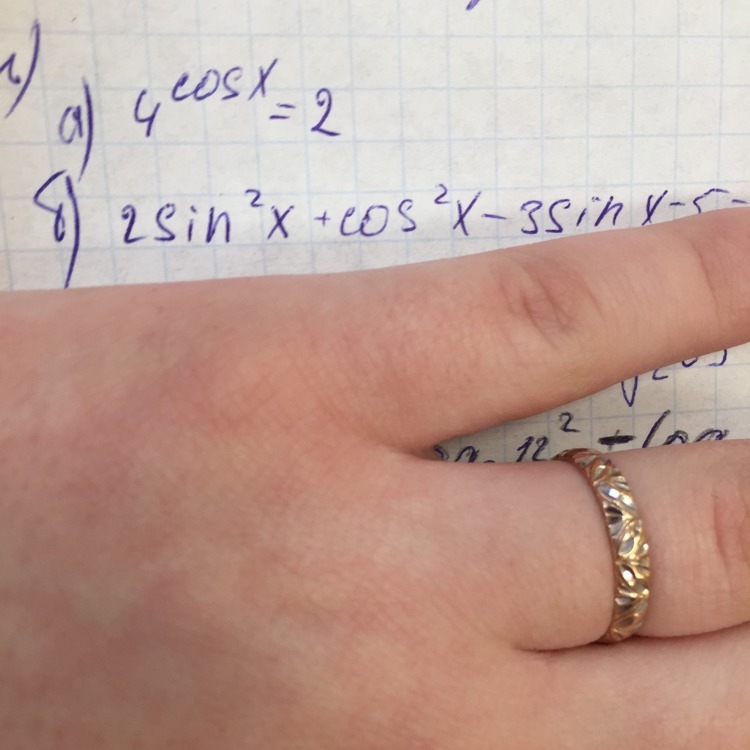 а) 4^cosx = 2
б) 2sin²x + cos²x - 3sin x - 5 -
12² + log